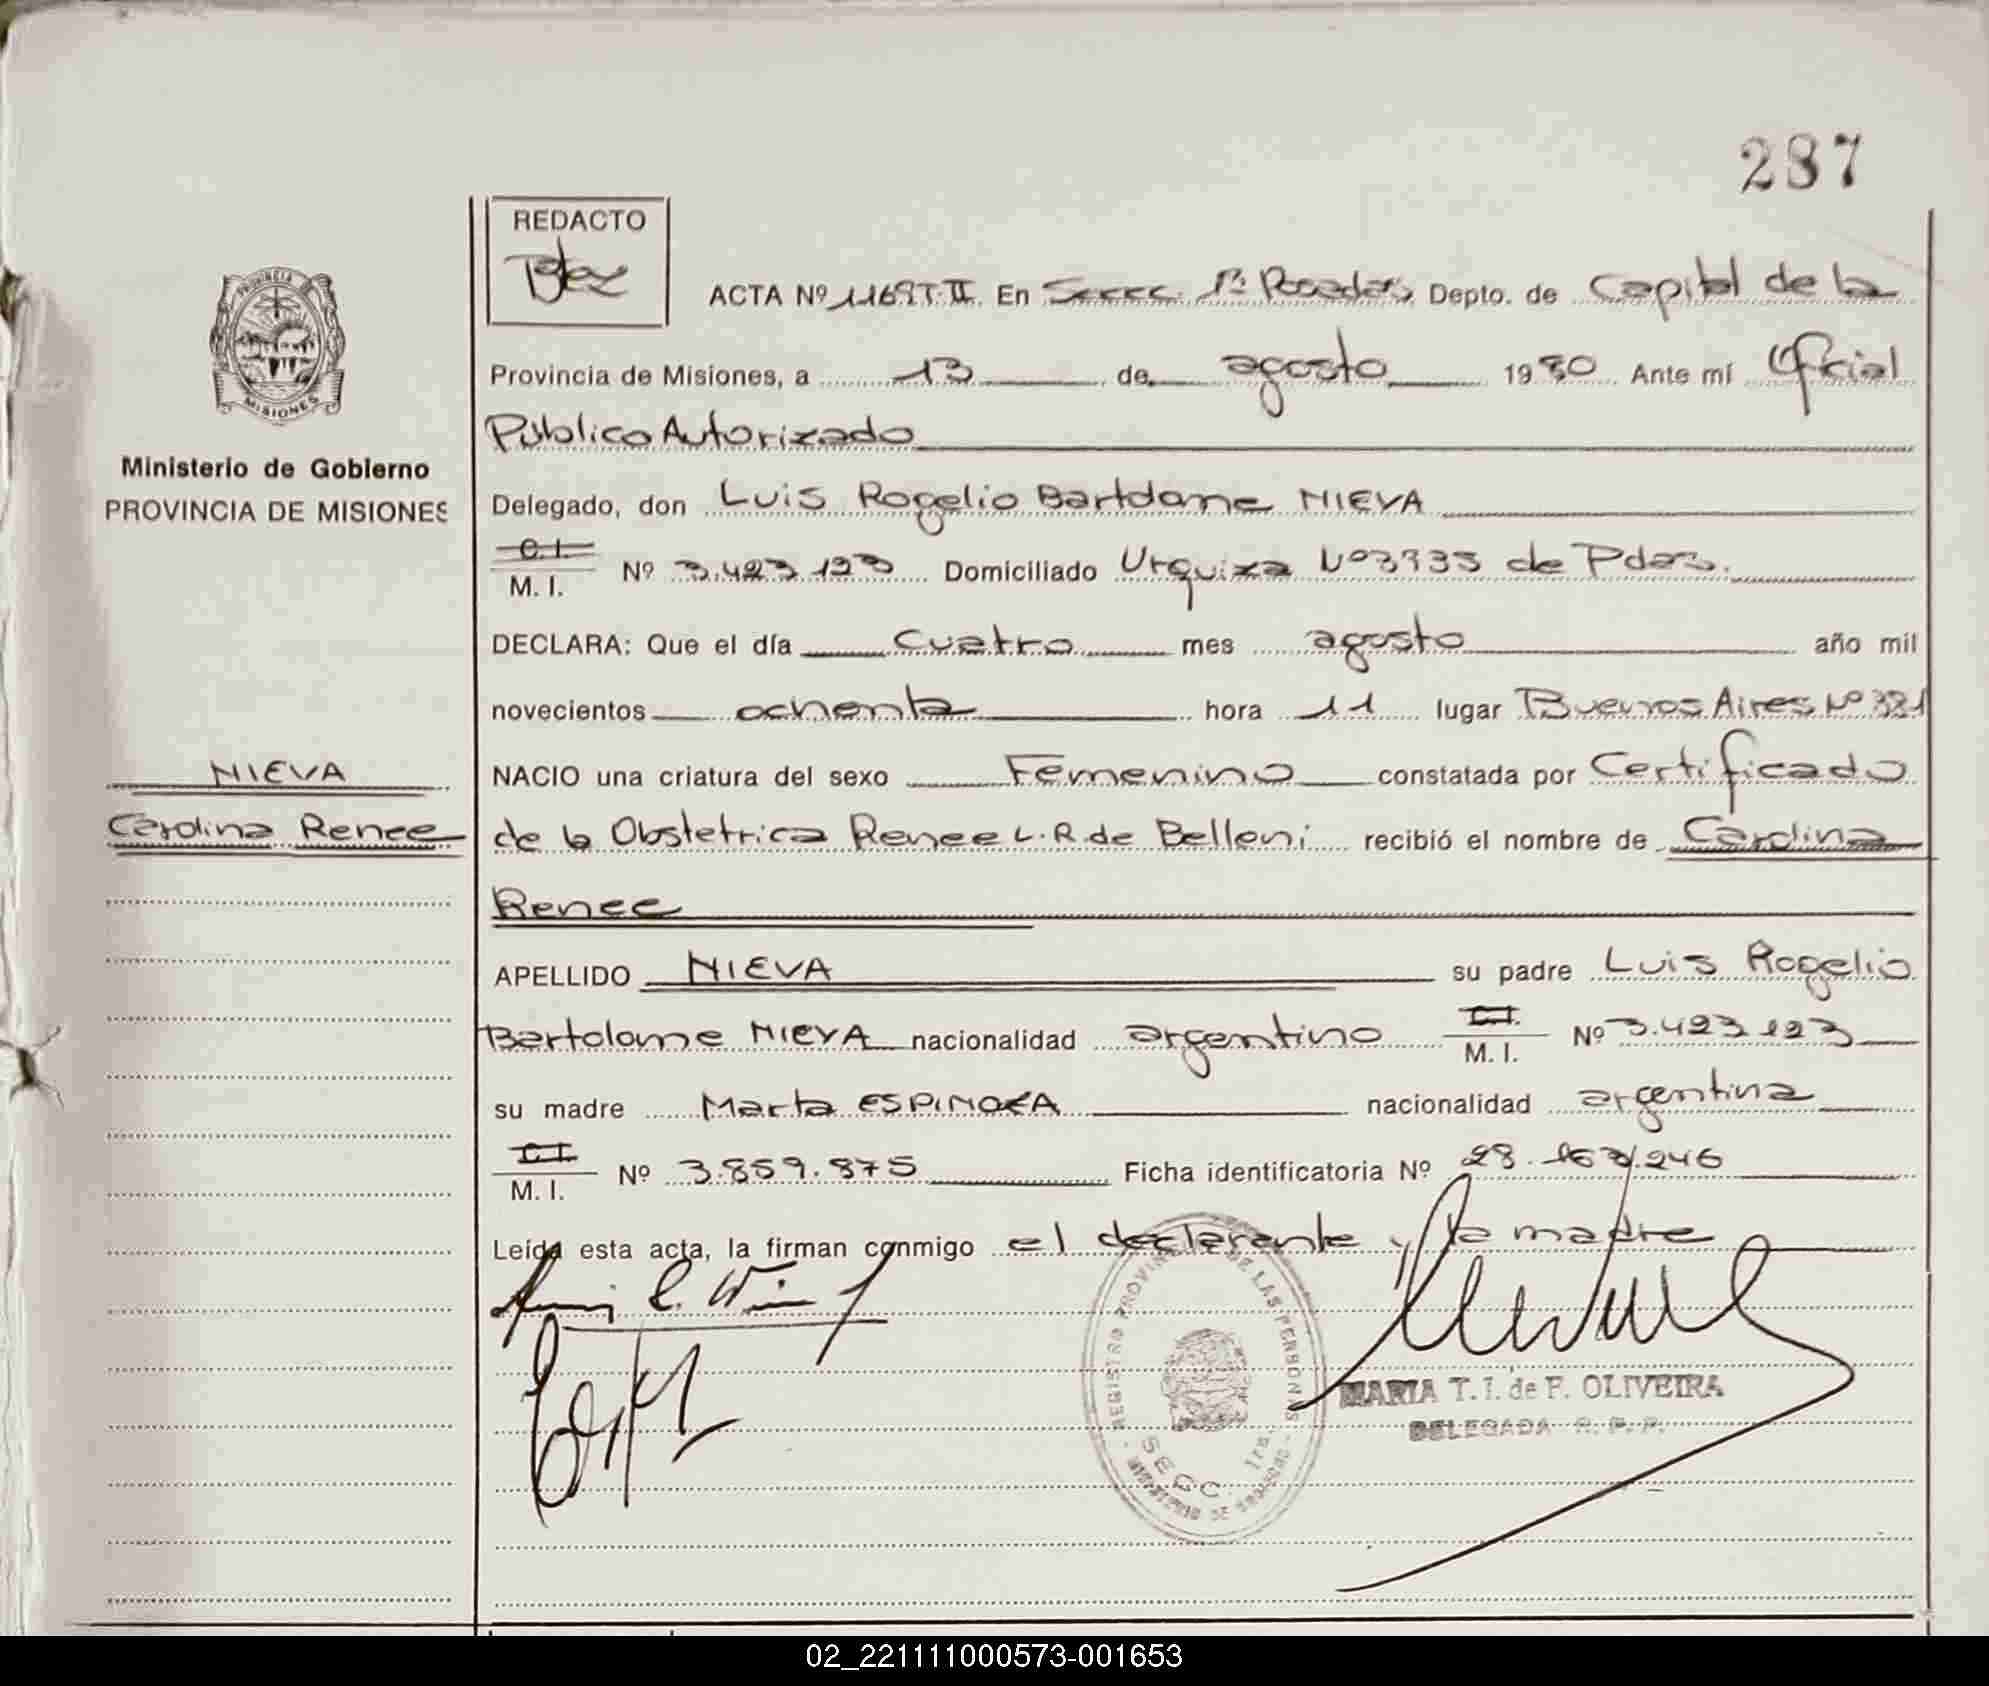 287
REDACTO
ACTA Nº 1169 T. II. En Secc. 1ª Posadas, Depto. de Capital de la
Provincia de Misiones, a 13 de agosto 1980 Ante mí Oficial
Público Autorizado
PROVINCIA
MISIONES
Ministerio de Gobierno
PROVINCIA DE MISIONES
Delegado, don Luis Rogelio Bartolome NIEVA
C. I.
M. I. Nº 3.423.123 Domiciliado Urquiza Nº de Pdas.
DECLARA: Que el día Cuatro mes agosto año mil
novecientos ochenta hora 11 lugar Buenos Aires Nº 381
NIEVA
NACIO una criatura del sexo Femenino constatada por Certificado
Carolina Renee
de la Obstetrica Renee L. R. de Belloni recibió el nombre de Carolina
Renee
APELLIDO NIEVA su padre Luis Rogelio
Bartolome NIEVA nacionalidad argentino C.I. M. I. Nº 3.423.123
su madre Marta ESPINOZA nacionalidad argentina
C.I.
M. I. Nº 3.859.875 Ficha identificatoria Nº 28. .246
Leída esta acta, la firman conmigo el declarante y la madre
REGISTRO PROVIN DE LAS PERSONAS
SECC. 1ra.
MINISTERIO DE GOBIERNO
MARIA T. I. de F. OLIVEIRA
DELEGADA R. P. P.
02_221111000573-001653